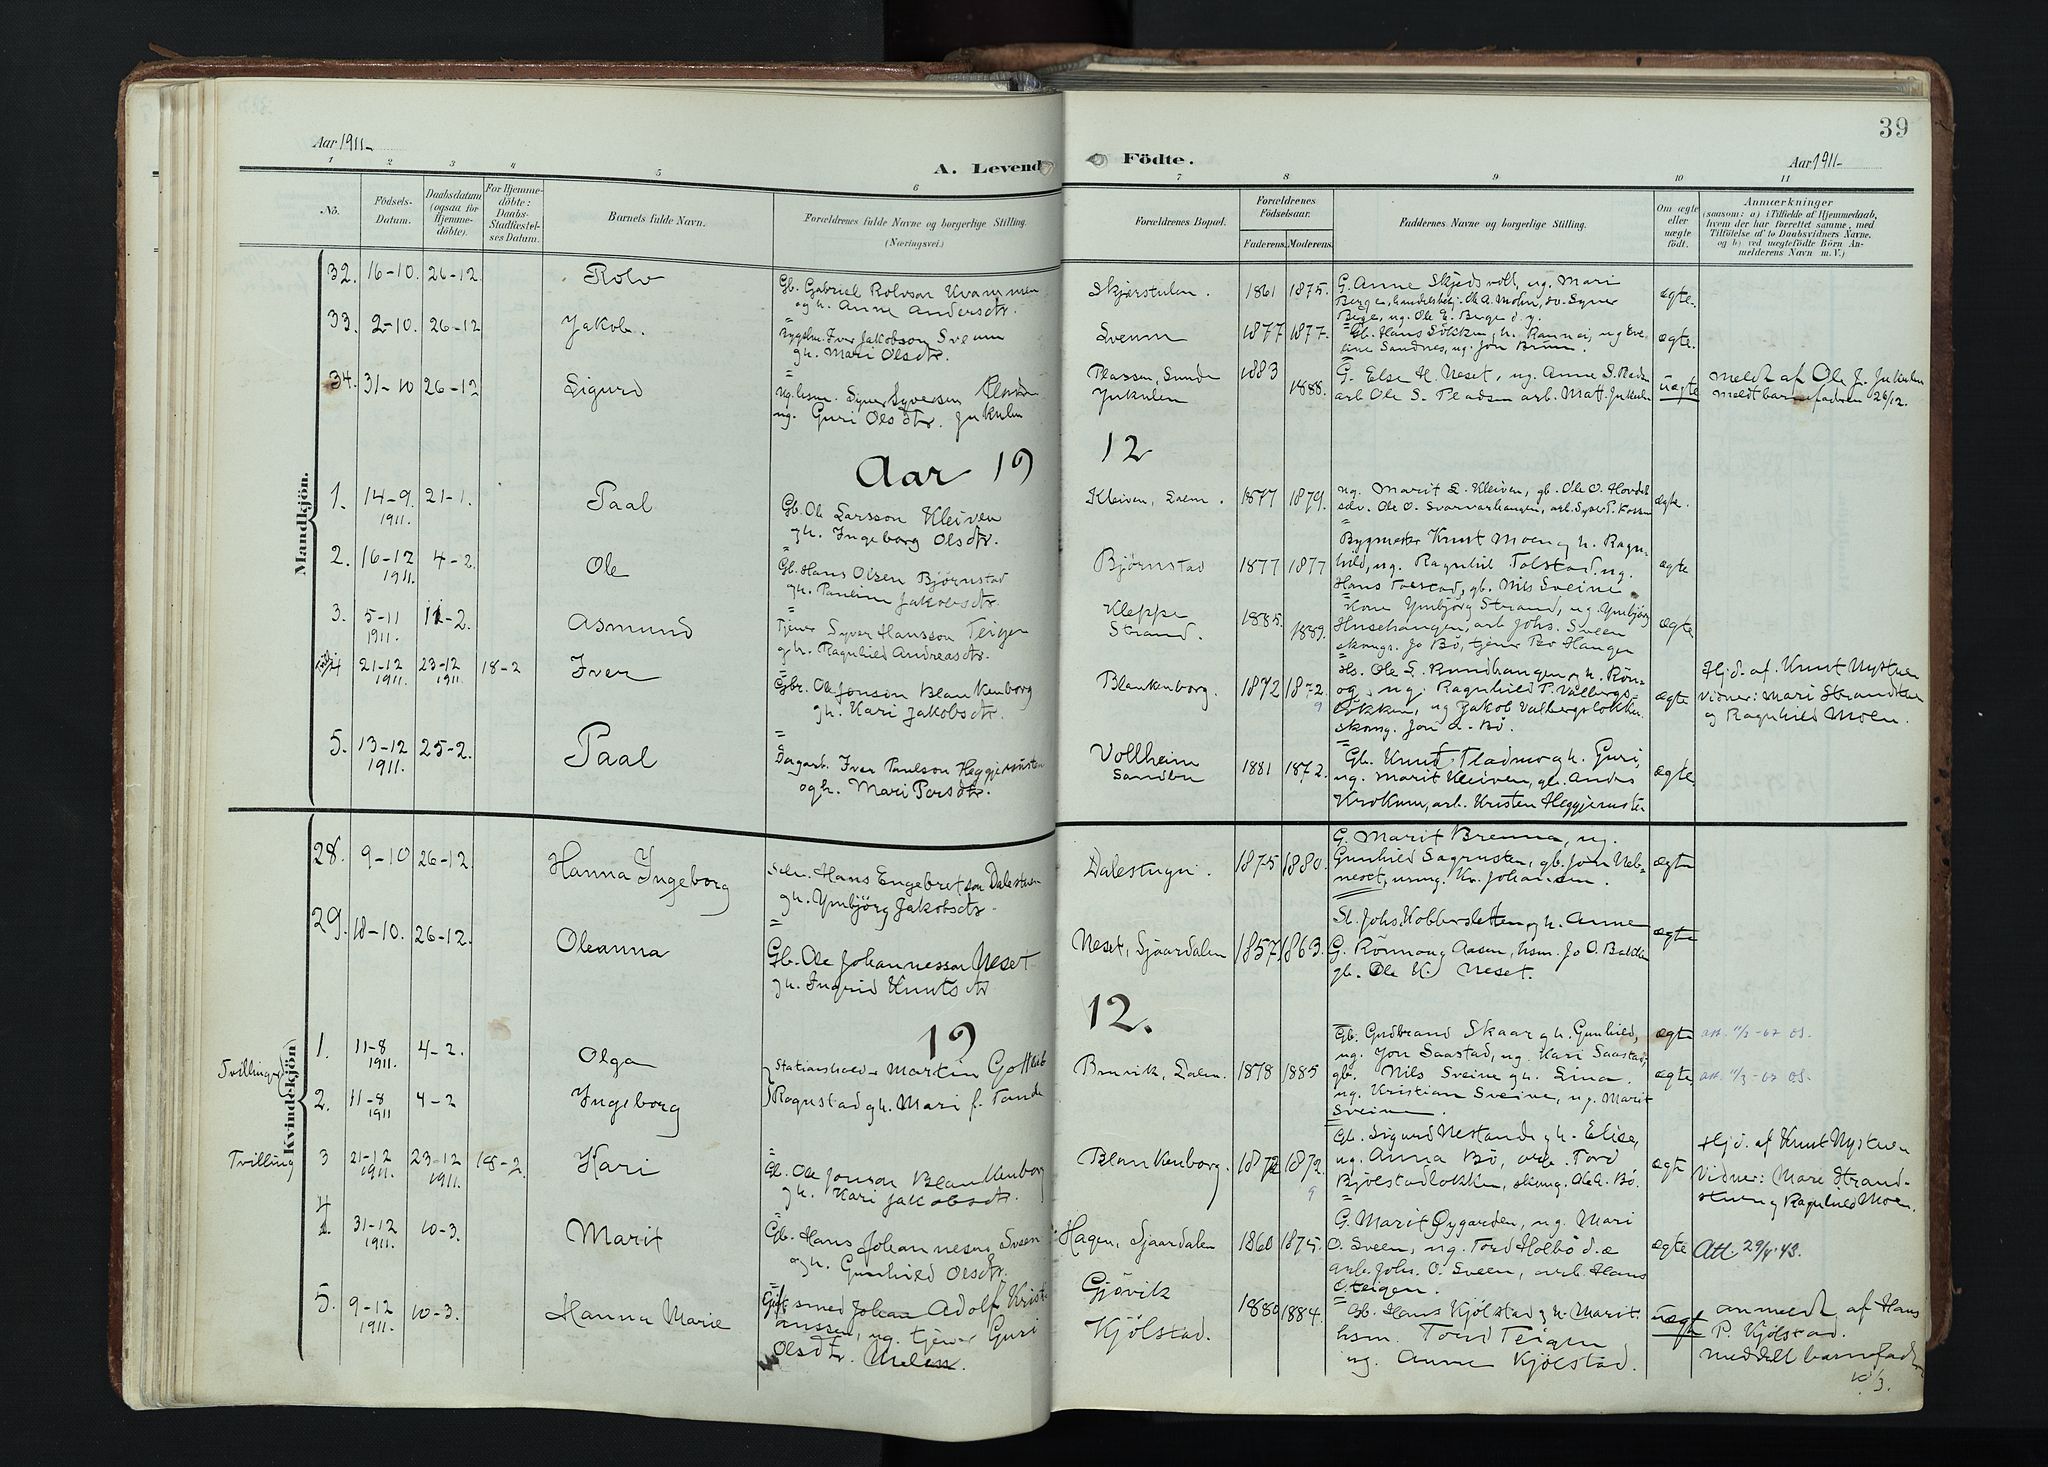 39
Aar 1911-
A. Levende Födte.
Aar 1911-
1 2 3 4 5 6 7 8 9 10 11
No.
Födsels-
Datum.
Daabsdatum
(ogsaa for
Hjemme-
döbte).
For Hjemme-
döbte:
Daabs-
Stadfæstel-
ses Datum.
Barnets fulde Navn.
Forældrenes fulde Navne og borgerlige Stilling.
(Næringsvei.)
Forældrenes Bopæl.
Forældrenes
Födselsaar.
Faderens. Moderens.
Faddernes Navne og borgerlige Stilling.
Om ægte
eller
uægte
födt.
Anmærkninger
(saasom: a) i Tilfælde af Hjemmedaab,
hvem der har forrettet samme, med
Tilföielse af to Daabsvidners Navne,
og b) ved uægtefödte Börn An-
melderens Navn m. V.)
Mandkjön.
32. 16-10. 26-12. Rolv
Gb. Gabriel Rolvson Kvammen
og h. Anne Andersdtr.
Skjerstulen. 1861 1875.
G. Anne Skjedsvoll, ug. Mari
Berge, ug. Ole E. Berge
ægte.
33. 2-10. 26-12 Jakob.
Iver Jakobson Sveum
gh. Mari Olsdtr.
Sveum 1877 1877.
Gb. Hans Løkken, h. Rannei, ug
Sandnes, ug. Jon Bruun.
ægte.
34. 31-10 26-12 Sigurd
Syver Syversen
ug. Guri Olsdtr. Jukulen
Plassen, Sunde
Jukulen
1883
1888.
G. Else H. Neset, ug. Anne S.
arb Ole S. Pladsen arb. Matt. Jukulen
uægte
meldt af Ole J. Jukulen
meldt barnefaderen 26/12.
Aar 1912
1. 14-9 1911. 21-1. Paal
Gb. Ole Larsson Kleiven
gh. Ingeborg Olsdtr.
Kleiven, Lalm. 1877 1879.
ug. Marit L. Kleiven, gb. Ole O.
Ole O. Svarvarhaugen, arb.
ægte.
2. 16-12 1911. 4-2. Ole
Gb. Hans Olsen Bjørnstad
gh. Pauline Jakobsdtr.
Bjørnstad 1877 1877
Bygmester Knut Moen og h. Ragn-
hild, ug. Ragnhil Tolstad, ug.
Hans Tolstad, gb. Nils Sveine
ægte
3. 5-11 1911. 11-2. Asmund
Tjener Syver Hansson Teigen
gh. Ragnhild Andreasdtr.
Kleppe
Strand.
1885.
1889.
Kone Ymbjørg Strand, ug. Ymbjørg
Husehaugen, arb Johs. Sveen
skomag. Jo Bø, tjener Per Haugen
ægte
4 21-12 1911. 23-12 1911 18-2 Iver
Gbr. Ole Jonson Blankenborg
gh. Kari Jakobsdtr.
Blankenborg. 1872 1872.
9
Hs. Ole L. Rundhaugen og h. Rön-
og, ug. Ragnhild P. Valbergs-
løkken, ug Jakob Valbergsløkken
skomg. Jon A. Bø.
ægte
Hjd. af Knut Nystuen
vidner: Mari Strandstuen
og Ragnhild Moen.
5. 13-12 1911. 25-2. Paal
Iver Paulson Heggjerusten
og h. Mari Persdtr.
Vollheim
Sandbu
1881 1872.
Gb. Knud Pladmo og h. Guri,
ug. Marit Kleiven, gb. Anders
Krokum, arb. Kristen Heggjerusten
ægte
Kvindekjön
28. 9-10 26-12 Hanna Ingeborg
Hans Engebretson Dalestuen
gh. Ymbjörg Jakobsdtr.
Dalestugu. 1875 1880.
G. Marit Brenna, ug.
Gunhild Sagrusten, gb. Jon Neb-
neset, ug. Kr. Johansen.
ægte
29. 18-10. 26-12. Oleanna
Gb. Ole Johannesson Neset
gh. Ingrid Knutsdtr
Neset, Sjaardalen 1857 1863.
Sl. Johs. Kobbersletten og h. Anne
G. Rönnaug Aasen, hsm. Jo O. Bakken
gb. Ole K. Neset.
ægte
1912.
Tvillinger
1. 11-8 1911 4-2. Olga
2. 11-8 1911 4-2 Ingeborg
Stationsholder Martin Gottlieb
Rognstad gh. Mari f. Tande
Bruvik, Lalm. 1878 1885
Gb. Gudbrand Skaar gh. Gunhild,
ug. Jon Saastad, ug. Kari Saastad,
gb. Nils Sveine gh. Lina.
ug. Kristian Sveine, ug. Marit
Sveine.
ægte
ægte
Tvilling
3 21-12 1911. 23-12 1911. 18-2. Kari
Gb. Ole Jonson Blankenborg
gh. Kari Jakobsdtr.
Blankenborg. 1872 1872.
9
Gb. Sigurd Nestande gh. Elise,
ug. Anna Bø, arb. Tord
Bjølstadløkken, skomg. Ole A. Bø.
ægte
Hjd. af Knut Nystuen
Vidner: Mari Strand-
stuen og Ragnhild Moen.
4 31-12 1911. 10-3. Marit
Gb. Hans Johannesen Sveen
og h. Gunhild Olsdtr.
Hagen, Sjaardalen 1860 1875.
G. Marit Øygarden, ug. Mari
O. Sveen, ug. Tord Holbö d.æ
arb. Johs. O. Sveen, arb. Hans
O. teigen.
ægte
Att. 29/4 43.
5. 9-12 1911. 10-3. Hanna Marie
smed Johan Adolf Kristi-
anssen, ug. tjener Guri
Olsdtr. Melen.
Gjövik
Kjölstad.
1880 1884.
Gb. Hans Kjölstad gh. Marit.
hsm. Tord Teigen
ug. Anne Kjölstad.
uægte
anmeldt af Hans
P. Kjölstad.
meddelt barnefad